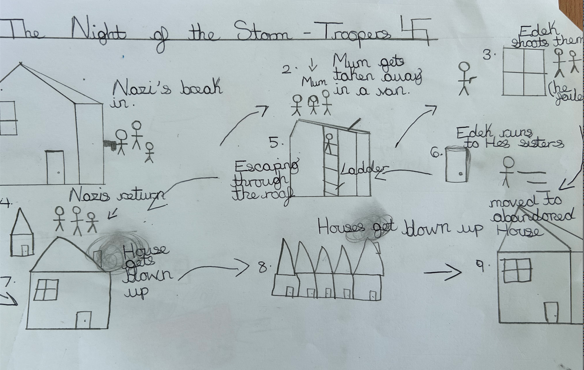 The Night of the Storm-Troopers
Nazi's break
in.
2.
Mum
Mum gets
taken away
in a van.
3.
Edek
shoots them
(he
6.
Edek runs
to Hes sisters
5.
Escaping
through
the roof
Ladder
4.
Nazis return
House
gets
blown
up
8.
Houses get blown up
9.
moved to
abandoned
House